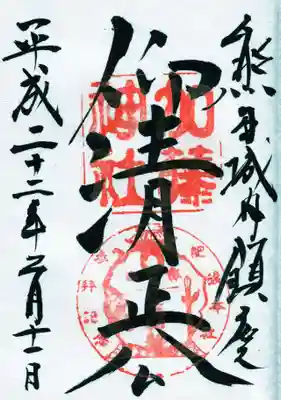 熊本城内鎮座
仰清正公
平成二十二年二月十一日
加藤
神社